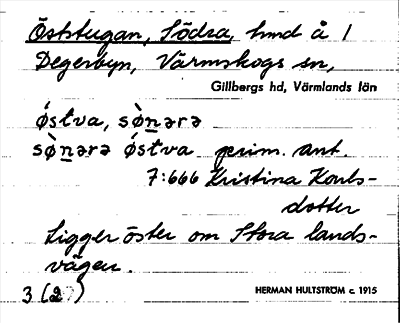 Öststugan, Södra, hmd å 1
Degerbyn, Värmskogs sn,
Gillbergs hd, Värmlands län
ǿstva, sø̀nərə
sø̀nərə ǿstva prim. ant.
7:666 Kristina Karls-
dotter
Ligger öster om Stora lands-
vägen.
3 (2)
HERMAN HULTSTRÖM c. 1915